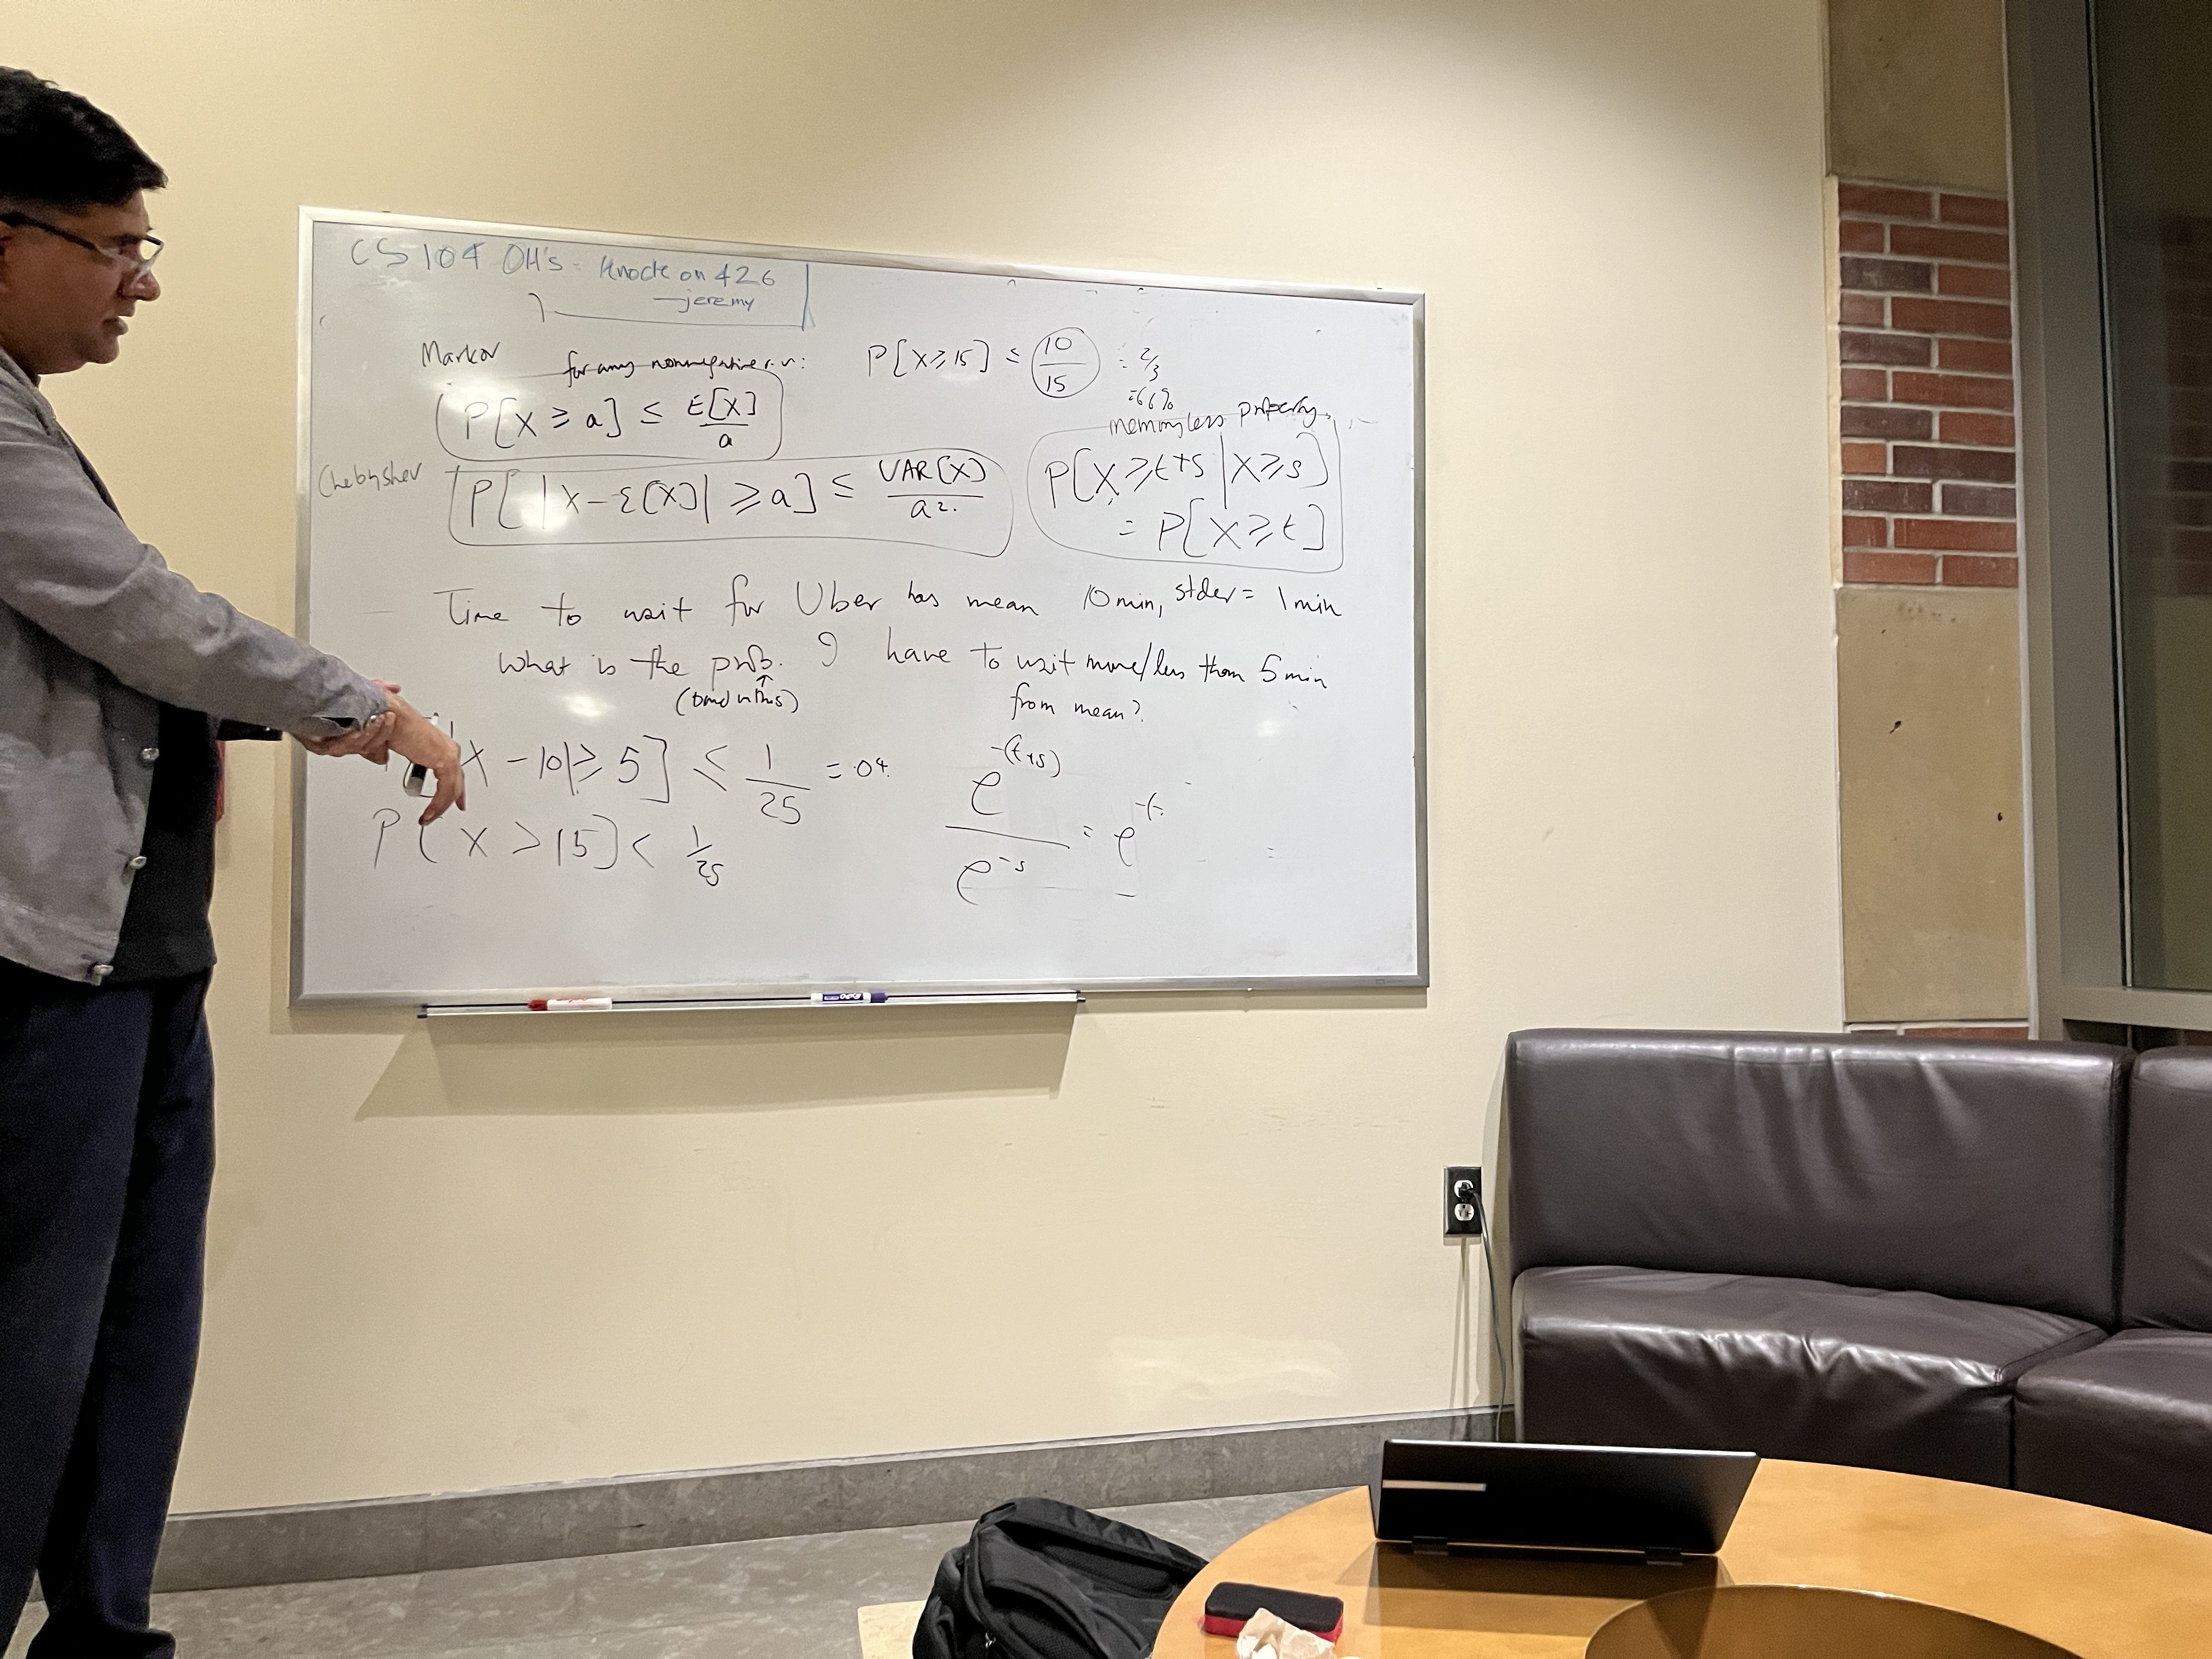 CS 104 OH's: Knock on 426
—jeremy
Markov for any nonnegative r.v:
P[X ≥ a] ≤ E[X]/a
P[X ≥ 15] ≤ 10/15 = 2/3
=66%
Chebyshev P[|X - E[X]| ≥ a] ≤ VAR[X]/a².
memoryless property.
P[X ≥ t+s | X ≥ s]
= P[X ≥ t]
Time to wait for Uber has mean 10 min, stdev = 1 min
What is the prob. I have to wait more/less than 5 min
(bound on this) from mean?
X - 10| ≥ 5] ≤ 1/25 = .04
P[X > 15] < 1/25
e^-(t+s) / e^-s = e^-t